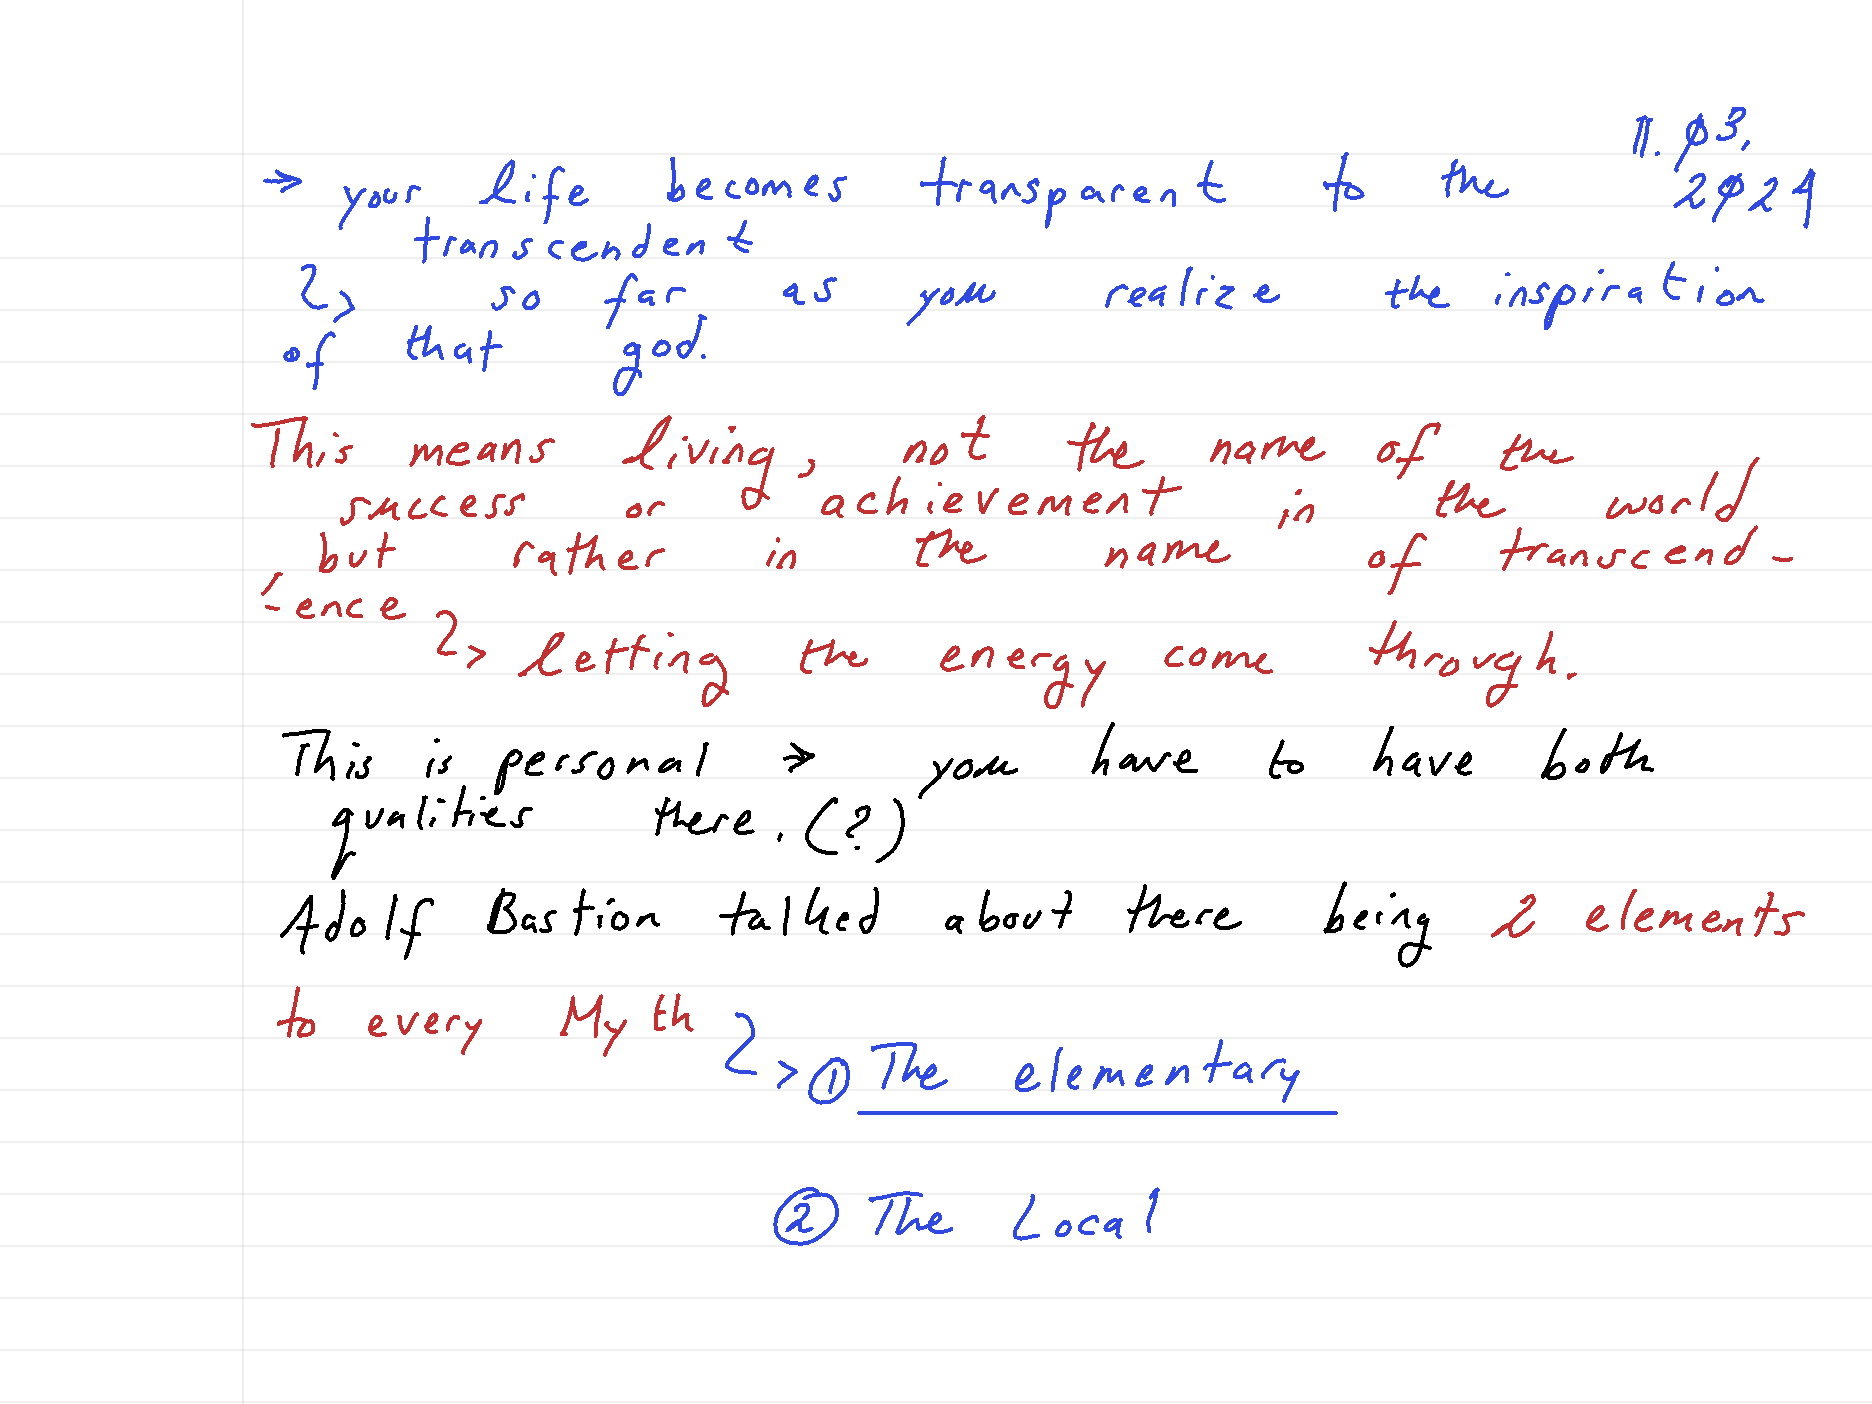 11. 03,
→ your life becomes transparent to the 2024
transcendent
↳ so far as you realize the inspiration
of that god.
This means living, not the name of the
success or achievement in the world
but rather in the name of transcend-
-ence ↳ letting the energy come through.
This is personal → you have to have both
qualities there. (?)
Adolf Bastion talked about there being 2 elements
to every Myth ↳ ① The elementary
② The Local